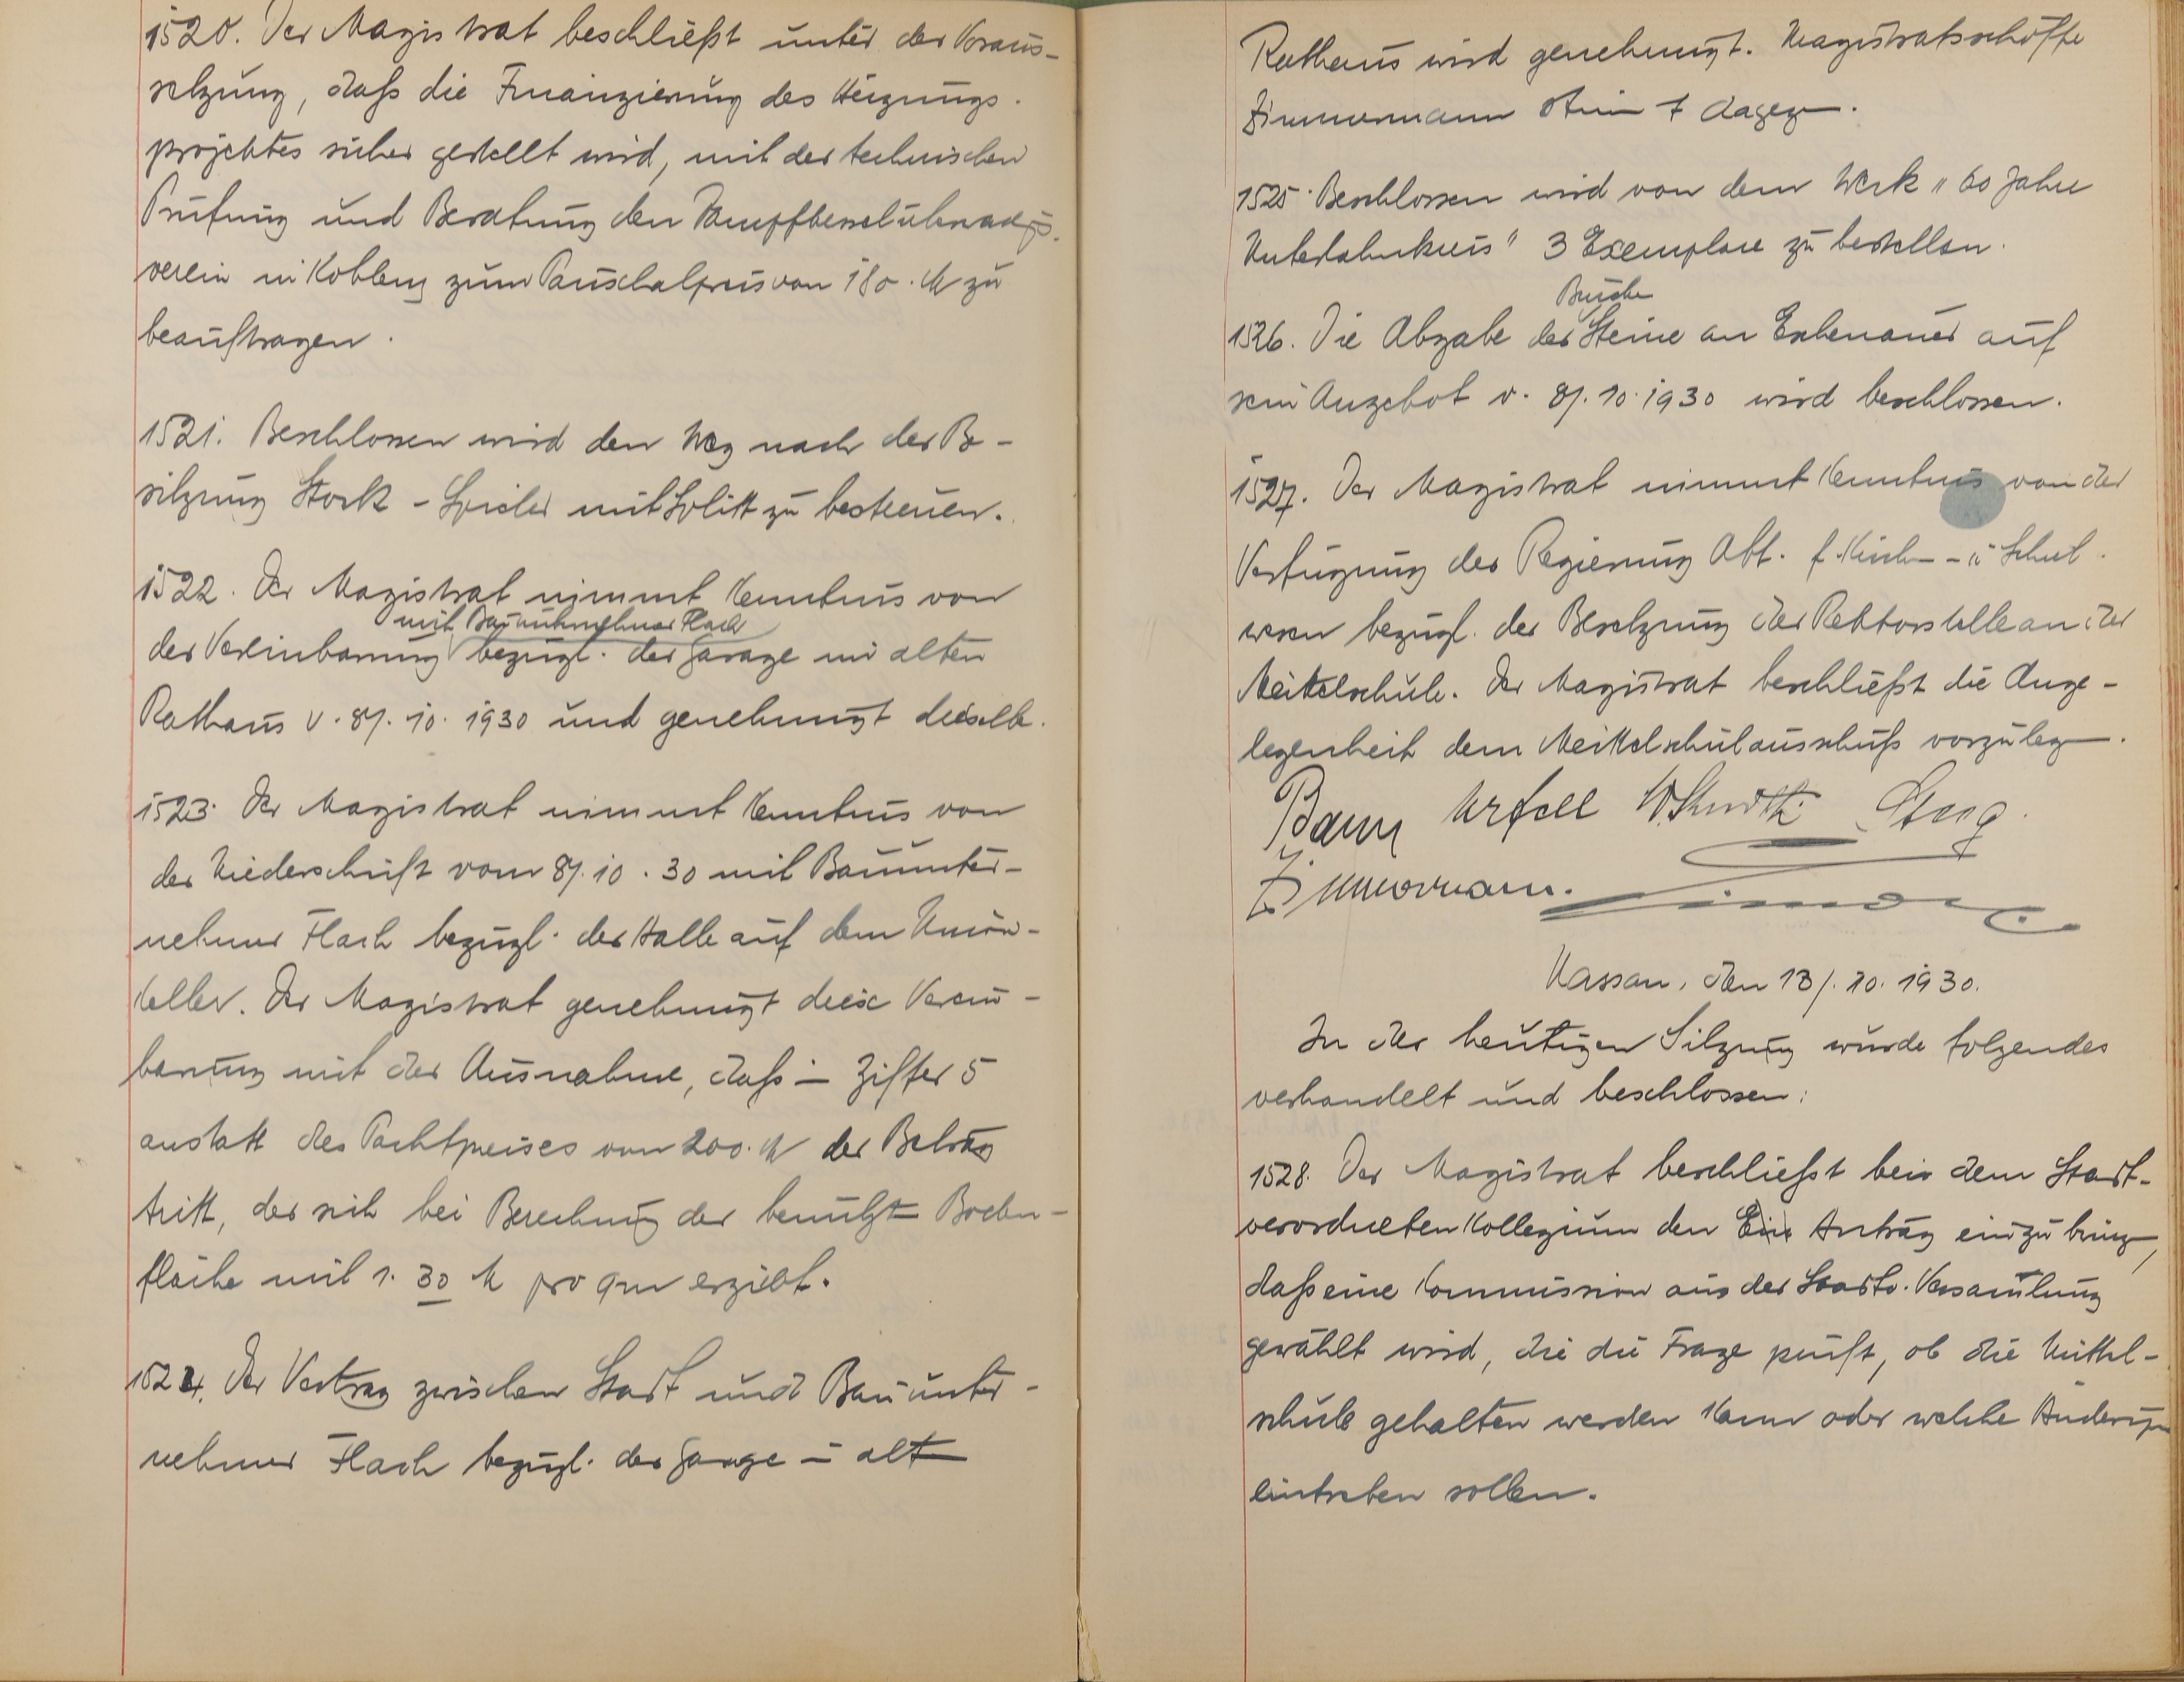 1520. Der Magistrat beschließt unter der Voraus-
setzung, daß die Finanzierung des Heizungs-
projektes sicher gestellt wird, mit der technischen
Prüfung und Beratung den Dampfkesselüberwachgs.
verein in Koblenz zum Pauschalpreis von 180. M zu
beauftragen.
1521. Beschlossen wird den Weg nach der Be-
sitzung Stork - mit Splitt zu bestreuen.
1522. Der Magistrat nimmt Kenntnis von
mit Bauunternehmer Flach
der Vereinbarung bezügl. der Garage im alten
Rathaus v. 8/. 10. 1930 und genehmigt dieselbe.
1523. Der Magistrat nimmt Kenntnis von
der Niederschrift vom 8/. 10. 30 mit Bauunter-
nehmer Flach bezügl. der Halle auf dem Union-
keller. Der Magistrat genehmigt diese Verein-
barung mit der Ausnahme, daß in Ziffer 5
anstatt des Pachtpreises von 200. M der Betrag
tritt, der sich bei Berechnung der benutzten Boden-
fläche mit 1. 30 M pro qm ergiebt.
1524. Der Vertrag zwischen Stadt und Bauunter-
nehmer Flach bezügl. der Garage im alten
Rathaus wird genehmigt. Magistratsschöffe
Zimmermann stimmt dagegen.
1525. Beschlossen wird von dem Werk „60 Jahre
Unterlahnkreis" 3 Exemplare zu bestellen.
Bruche
1526. Die Abgabe der Steine an auf
sein Angebot v. 8/. 10. 1930 wird beschlossen.
1527. Der Magistrat nimmt Kenntnis von der
Verfügung der Regierung Abt. f. Kirchen- u. Schul-
wesen bezügl. der Besetzung der Rektorstelle an der
Mittelschule. Der Magistrat beschließt die Ange-
legenheit dem Mittelschulausschuß vorzulegen.
Zimmermann.
Nassau, den 13/. 10. 1930.
In der heutigen Sitzung wurde folgendes
verhandelt und beschlossen:
1528. Der Magistrat beschließt bei dem Stadt-
verordneten Kollegium den Antrag einzubringen,
daß eine Kommission aus der Stadtv. Versamlung
gewählt wird, die die Frage prüft, ob die Mittel-
schule gehalten werden kann oder welche Änderungen
eintreten sollen.